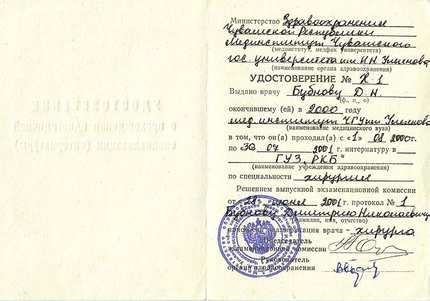 Министерство Здравоохранения
Чувашской Республики
(мединститут, медфак университета)
Мединститут Чувашского
гос. университета им. И.Н. Ульянова
(наименование органа здравоохранения)
УДОСТОВЕРЕНИЕ № Х-1
Выдано врачу Бубнову Д. Н.
(ф., и., о)
окончившему (ей) в 2000 году
мед. институт ЧГУ им. Ульянова
(наименование медицинского вуза)
в том, что он(а) проходил(а) с «1» 08 2000г.
по «30» 07 2001 г. интернатуру в
ГУЗ „РКБ"
(наименование учреждения здравоохранения)
по специальности хирургия
Решением выпускной экзаменационной комиссии
от «28» июня 2001 г. протокол № 1
Бубнову Дмитрию Николаевичу
(фамилия, имя, отчество)
врача - хирурга
Председатель
экзаменационной комиссии
Руководитель
органа здравоохранения